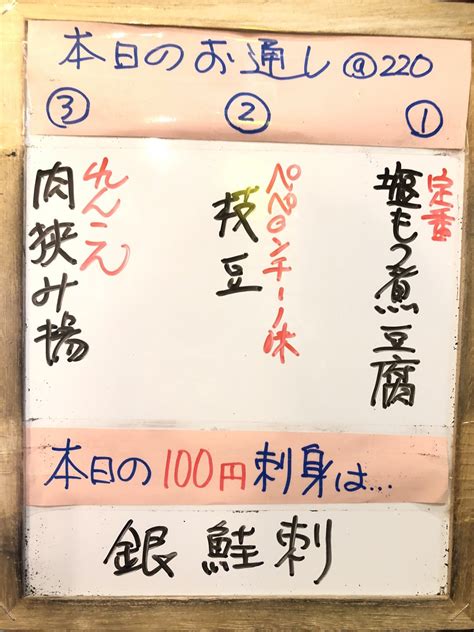 本日のお通し@220
①
定番
姫もつ煮豆腐
②
ペペロンチーノ味
枝豆
③
れんこん
肉挟み揚
本日の100円刺身は...
銀鮭刺